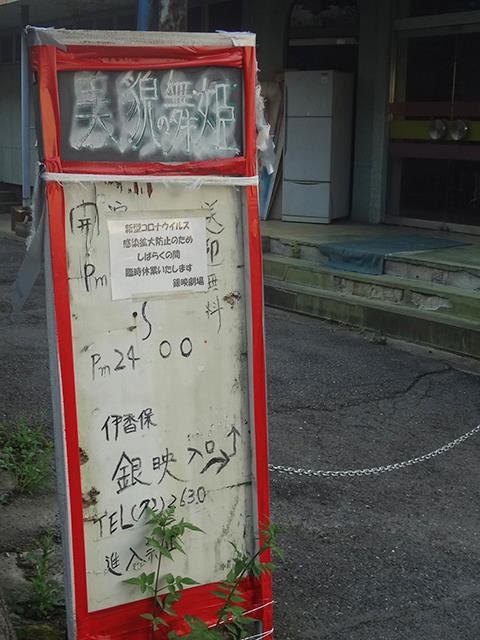 美貌の舞姫
開演 送迎無料
新型コロナウイルス
感染拡大防止のため
しばらくの間
臨時休業いたします
銀映劇場
Pm
〜
Pm24 00
伊香保
銀映 入口
TEL(72)2630
進入